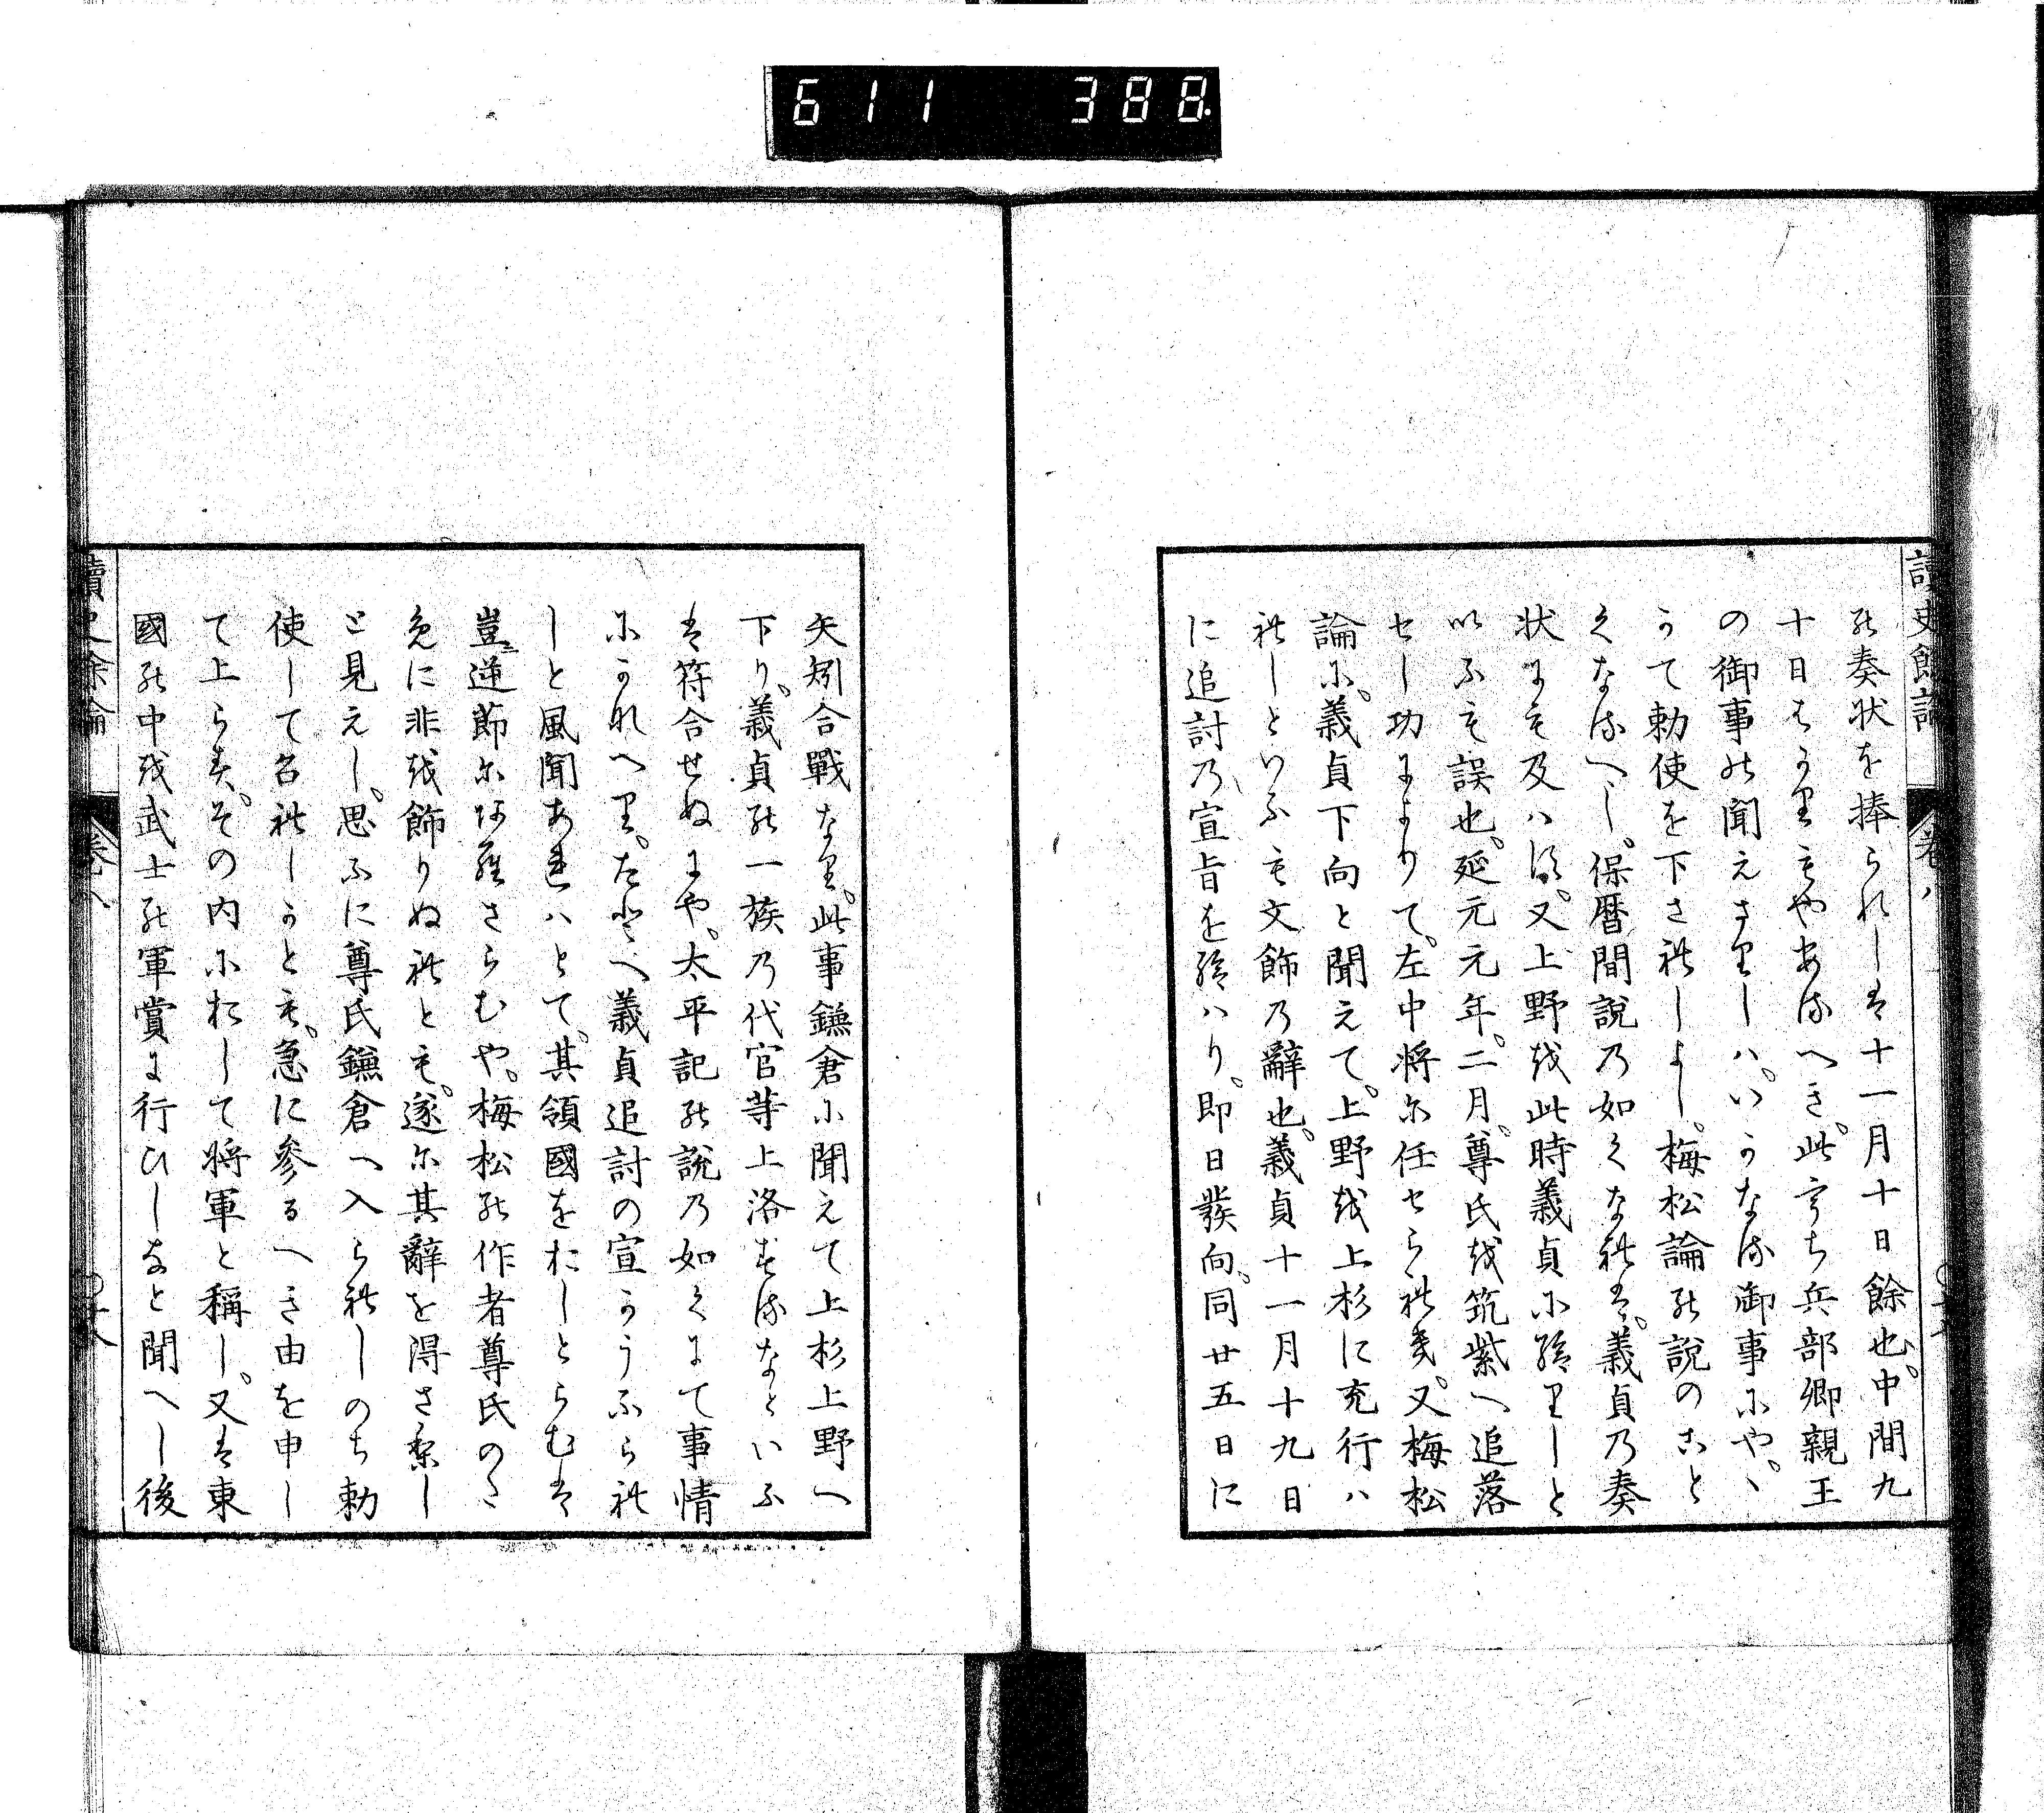 611 388
讀史餘論 卷八
の奏状を捧られしは十一月十日餘也。中間九
十日はかりもやあるへき。此うち兵部卿親王
の御事の聞えさりしハ。いかなる御事にや。
かて勅使を下されしよし。梅松論の説のこと
くなるへし。保暦間説の如くなれは。義貞の奏
状にも及ハす。又上野を此時義貞に給りしと
いふも誤也。延元元年。二月。尊氏を筑紫へ追落
せし功によりて。左中将に任せられき。又梅松
論に。義貞下向と聞えて。上野を上杉に充行ハ
れしといふも文飾の辭也。義貞十一月十九日
に追討の宣旨を給ハり。即日發向。同廿五日に
矢矧合戰なり。此事鎌倉に聞えて上杉上野へ
下り。義貞の一族の代官等上洛するなといふ
は符合せぬにや。太平記の説の如くにて事情
にかれへり。たとへ義貞追討の宣かうふられ
しと風聞あれハとて。其領國をおしとらむは
豈逆節にあらさらむや。梅松の作者尊氏のた
免に非を飾りぬれとも。遂に其辭を得さりし
と見えし。思ふに尊氏鎌倉へ入られしのち勅
使して召れしかとも。急に参るへき由を申し
て上らす。その内におして将軍と稱し。又は東
國の中を武士の軍賞に行ひしなと聞へし後
讀史餘論 卷八